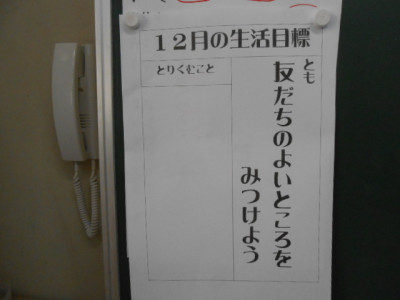 12月の生活目標
とも
友だちのよいところを
みつけよう
とりくむこと